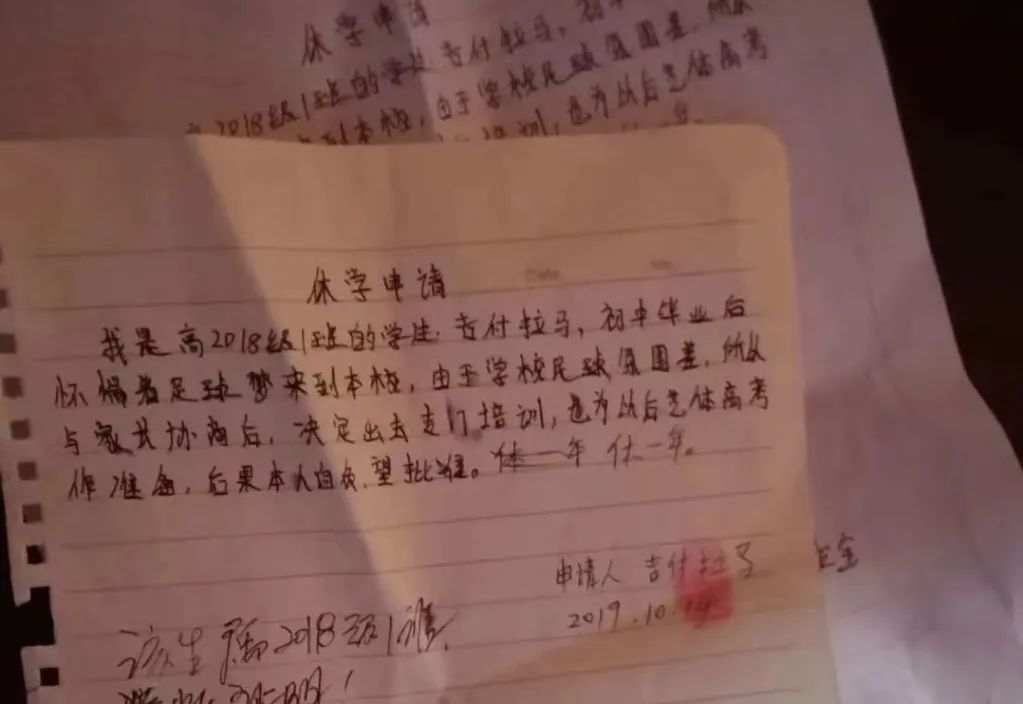 休学申请
2018级1班的学生吉付拉马,初中
到本校,由于学校足球氛围差.所以
培训,也为以后艺体高考
休学申请
我是高2018级1班的学生.吉付拉马,初中毕业后
怀惴着足球梦来到本校,由于学校足球氛围差.所以
与家长协商后,决定出去专门培训,也为以后艺体高考
作准备,后果本人自负.望批准。休一年 休一年。
申请人 吉付拉马
2019.10.
该生系2018级1班